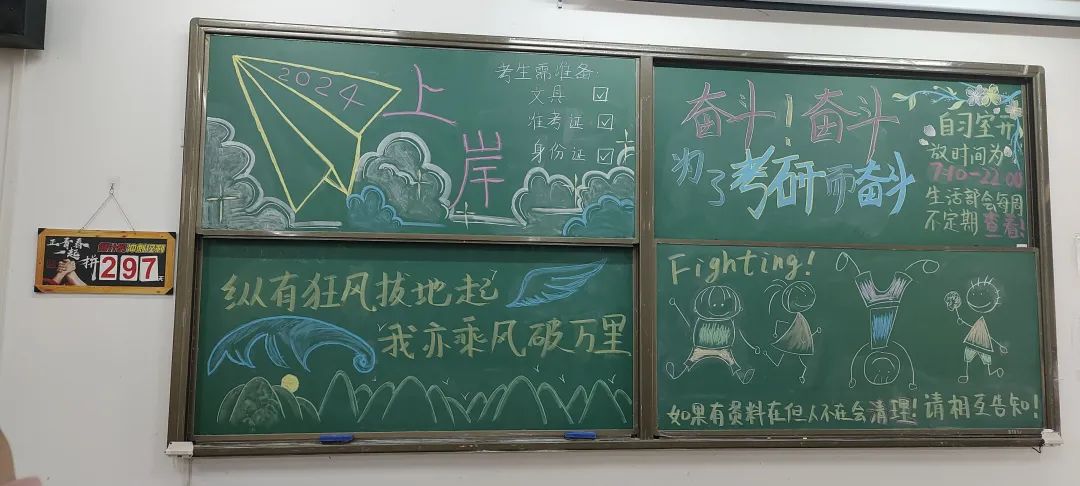 正青春
一起
拼
297
天
2024
上
岸
考生需准备:
文具
准考证
身份证
奋斗!奋斗
为了考研而奋斗
自习室开
放时间为
7:10-22:00
生活部会每周
不定期查看!
纵有狂风拔地起
我亦乘风破万里
Fighting!
如果有资料在但人不在会清理!请相互告知!